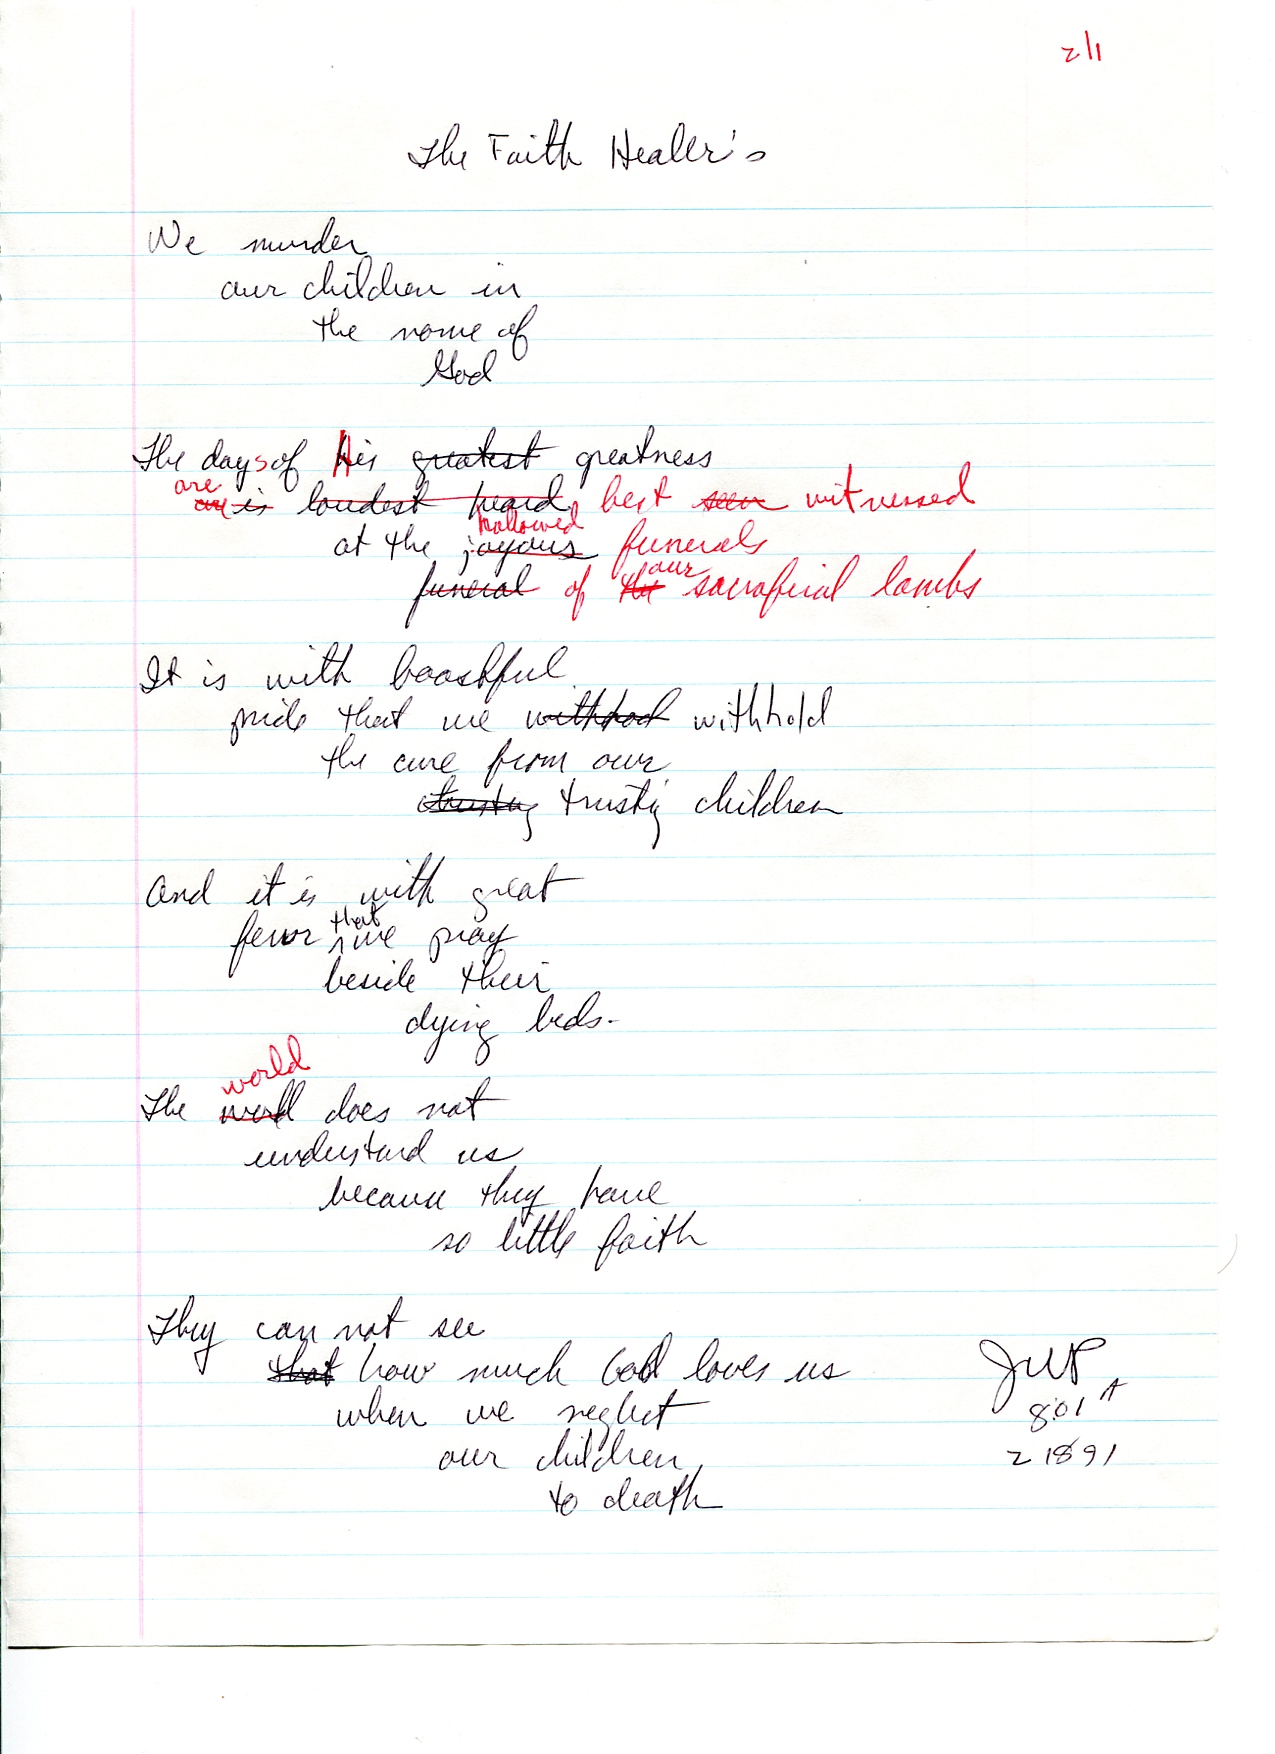 2/1
The Faith Healer's
We murder
our children in
the name of
God
The days of His greatest greatness
are
are is loudest heard best seen witnessed
hallowed
at the joyous funerals
our
funeral of the sacrafirial lambs
It is with boashful
pride that we withhod withhold
the cure from our
trusty trustig children
And it is with great
that
fevor we pray
beside their
dying beds.
world
The world does not
understand us
because they have
so little faith
They can not see
that how much God loves us
when we neglect
our children
to death
JWP
8:01 A
2 18 91